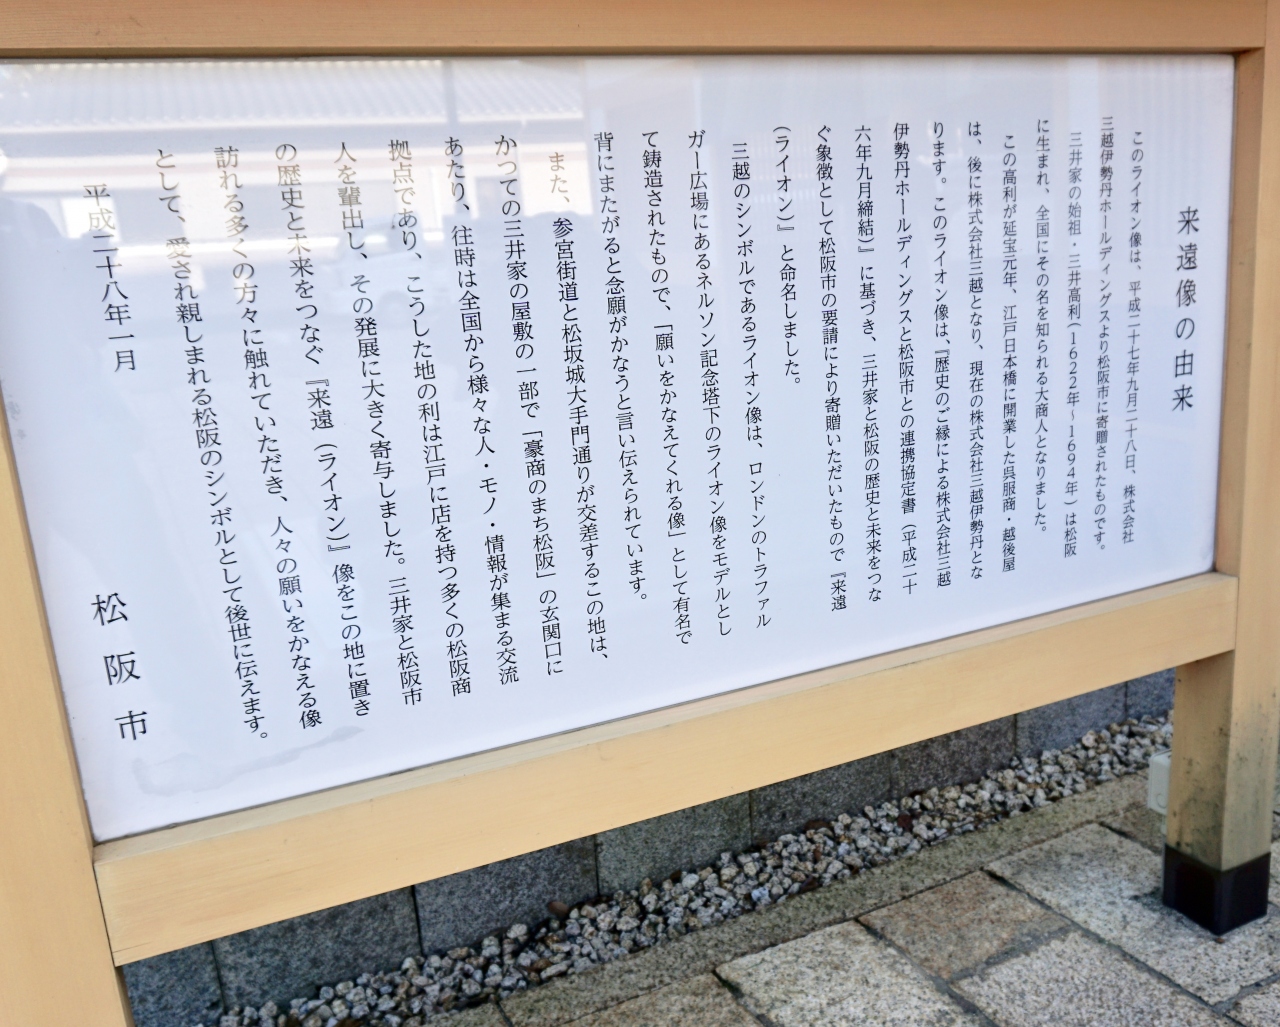 来遠像の由来
このライオン像は、平成二十七年九月二十八日、株式会社
三越伊勢丹ホールディングスより松阪市に寄贈されたものです。
三井家の始祖・三井高利（1622年～1694年）は松阪
に生まれ、全国にその名を知られる大商人となりました。
この高利が延宝元年、江戸日本橋に開業した呉服商・越後屋
は、後に株式会社三越となり、現在の株式会社三越伊勢丹とな
ります。このライオン像は、『歴史のご縁による株式会社三越
伊勢丹ホールディングスと松阪市との連携協定書（平成二十
六年九月締結）』に基づき、三井家と松阪の歴史と未来をつな
ぐ象徴として松阪市の要請により寄贈いただいたもので『来遠
（ライオン）』と命名しました。
三越のシンボルであるライオン像は、ロンドンのトラファル
ガー広場にあるネルソン記念塔下のライオン像をモデルとし
て鋳造されたもので、「願いをかなえてくれる像」として有名で
背にまたがると念願がかなうと言い伝えられています。
また、参宮街道と松坂城大手門通りが交差するこの地は、
かつての三井家の屋敷の一部で「豪商のまち松阪」の玄関口に
あたり、往時は全国から様々な人・モノ・情報が集まる交流
拠点であり、こうした地の利は江戸に店を持つ多くの松阪商
人を輩出し、その発展に大きく寄与しました。三井家と松阪市
の歴史と未来をつなぐ『来遠（ライオン）』像をこの地に置き
訪れる多くの方々に触れていただき、人々の願いをかなえる像
として、愛され親しまれる松阪のシンボルとして後世に伝えます。
平成二十八年一月
松阪市